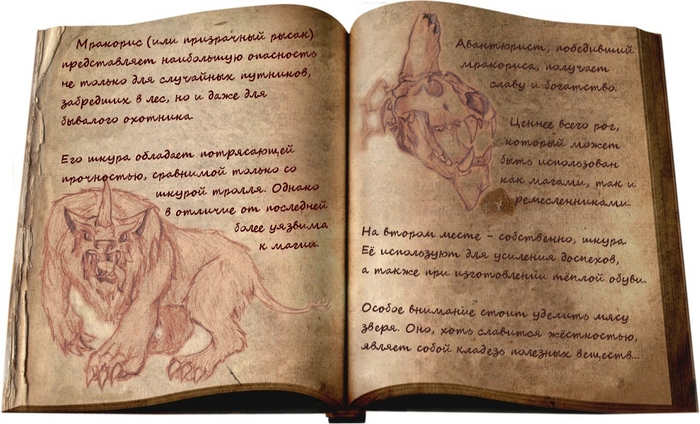 Мракорис (или призрачный рысак)
представляет наибольшую опасность
не только для случайных путников,
забредших в лес, но и даже для
бывалого охотника
Его шкура обладает потрясающей
прочностью, сравнимой только со
шкурой тролля. Однако
в отличие от последней
более уязвима
к магии.
Авантюрист, победивший
мракориса, получает
славу и богатство.
Ценнее всего рог,
который может
быть использован
как магами, так и
ремесленниками.
На втором месте - собственно, шкура.
Её используют для усиления доспехов,
а также при изготовлении тёплой обуви.
Особое внимание стоит уделить мясу
зверя. Оно, хоть славится жёсткостью,
являет собой кладезь полезных веществ...